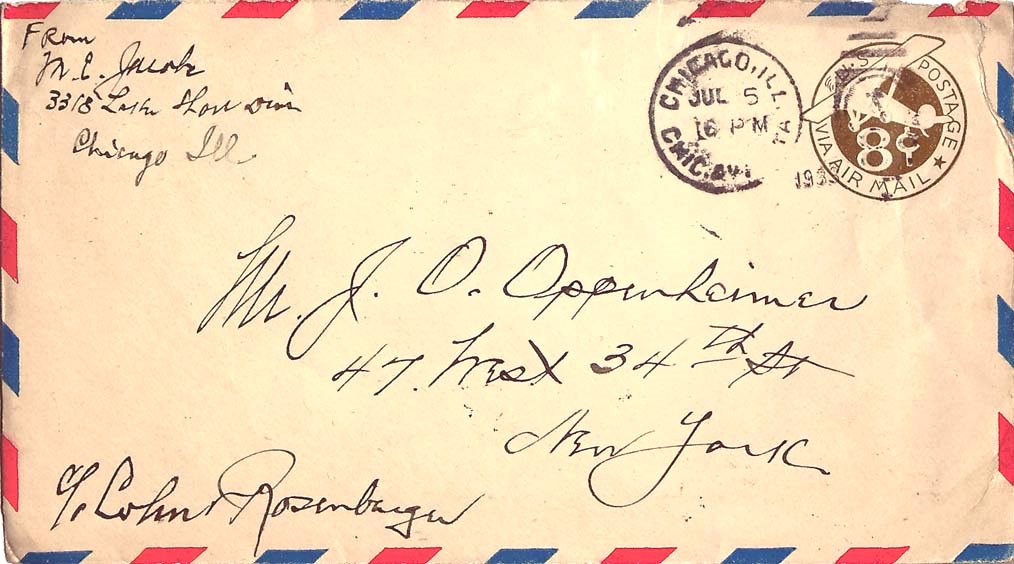 From
M. E. Jacob
3318 Lake Shore Drive
Chicago Ill
CHICAGO, ILL.
JUL 5
PM
U.S. POSTAGE
8¢
VIA AIR MAIL
Mr. J. O. Oppenheimer
47 West 34th St
New York
c/o Cohn Rosenberger